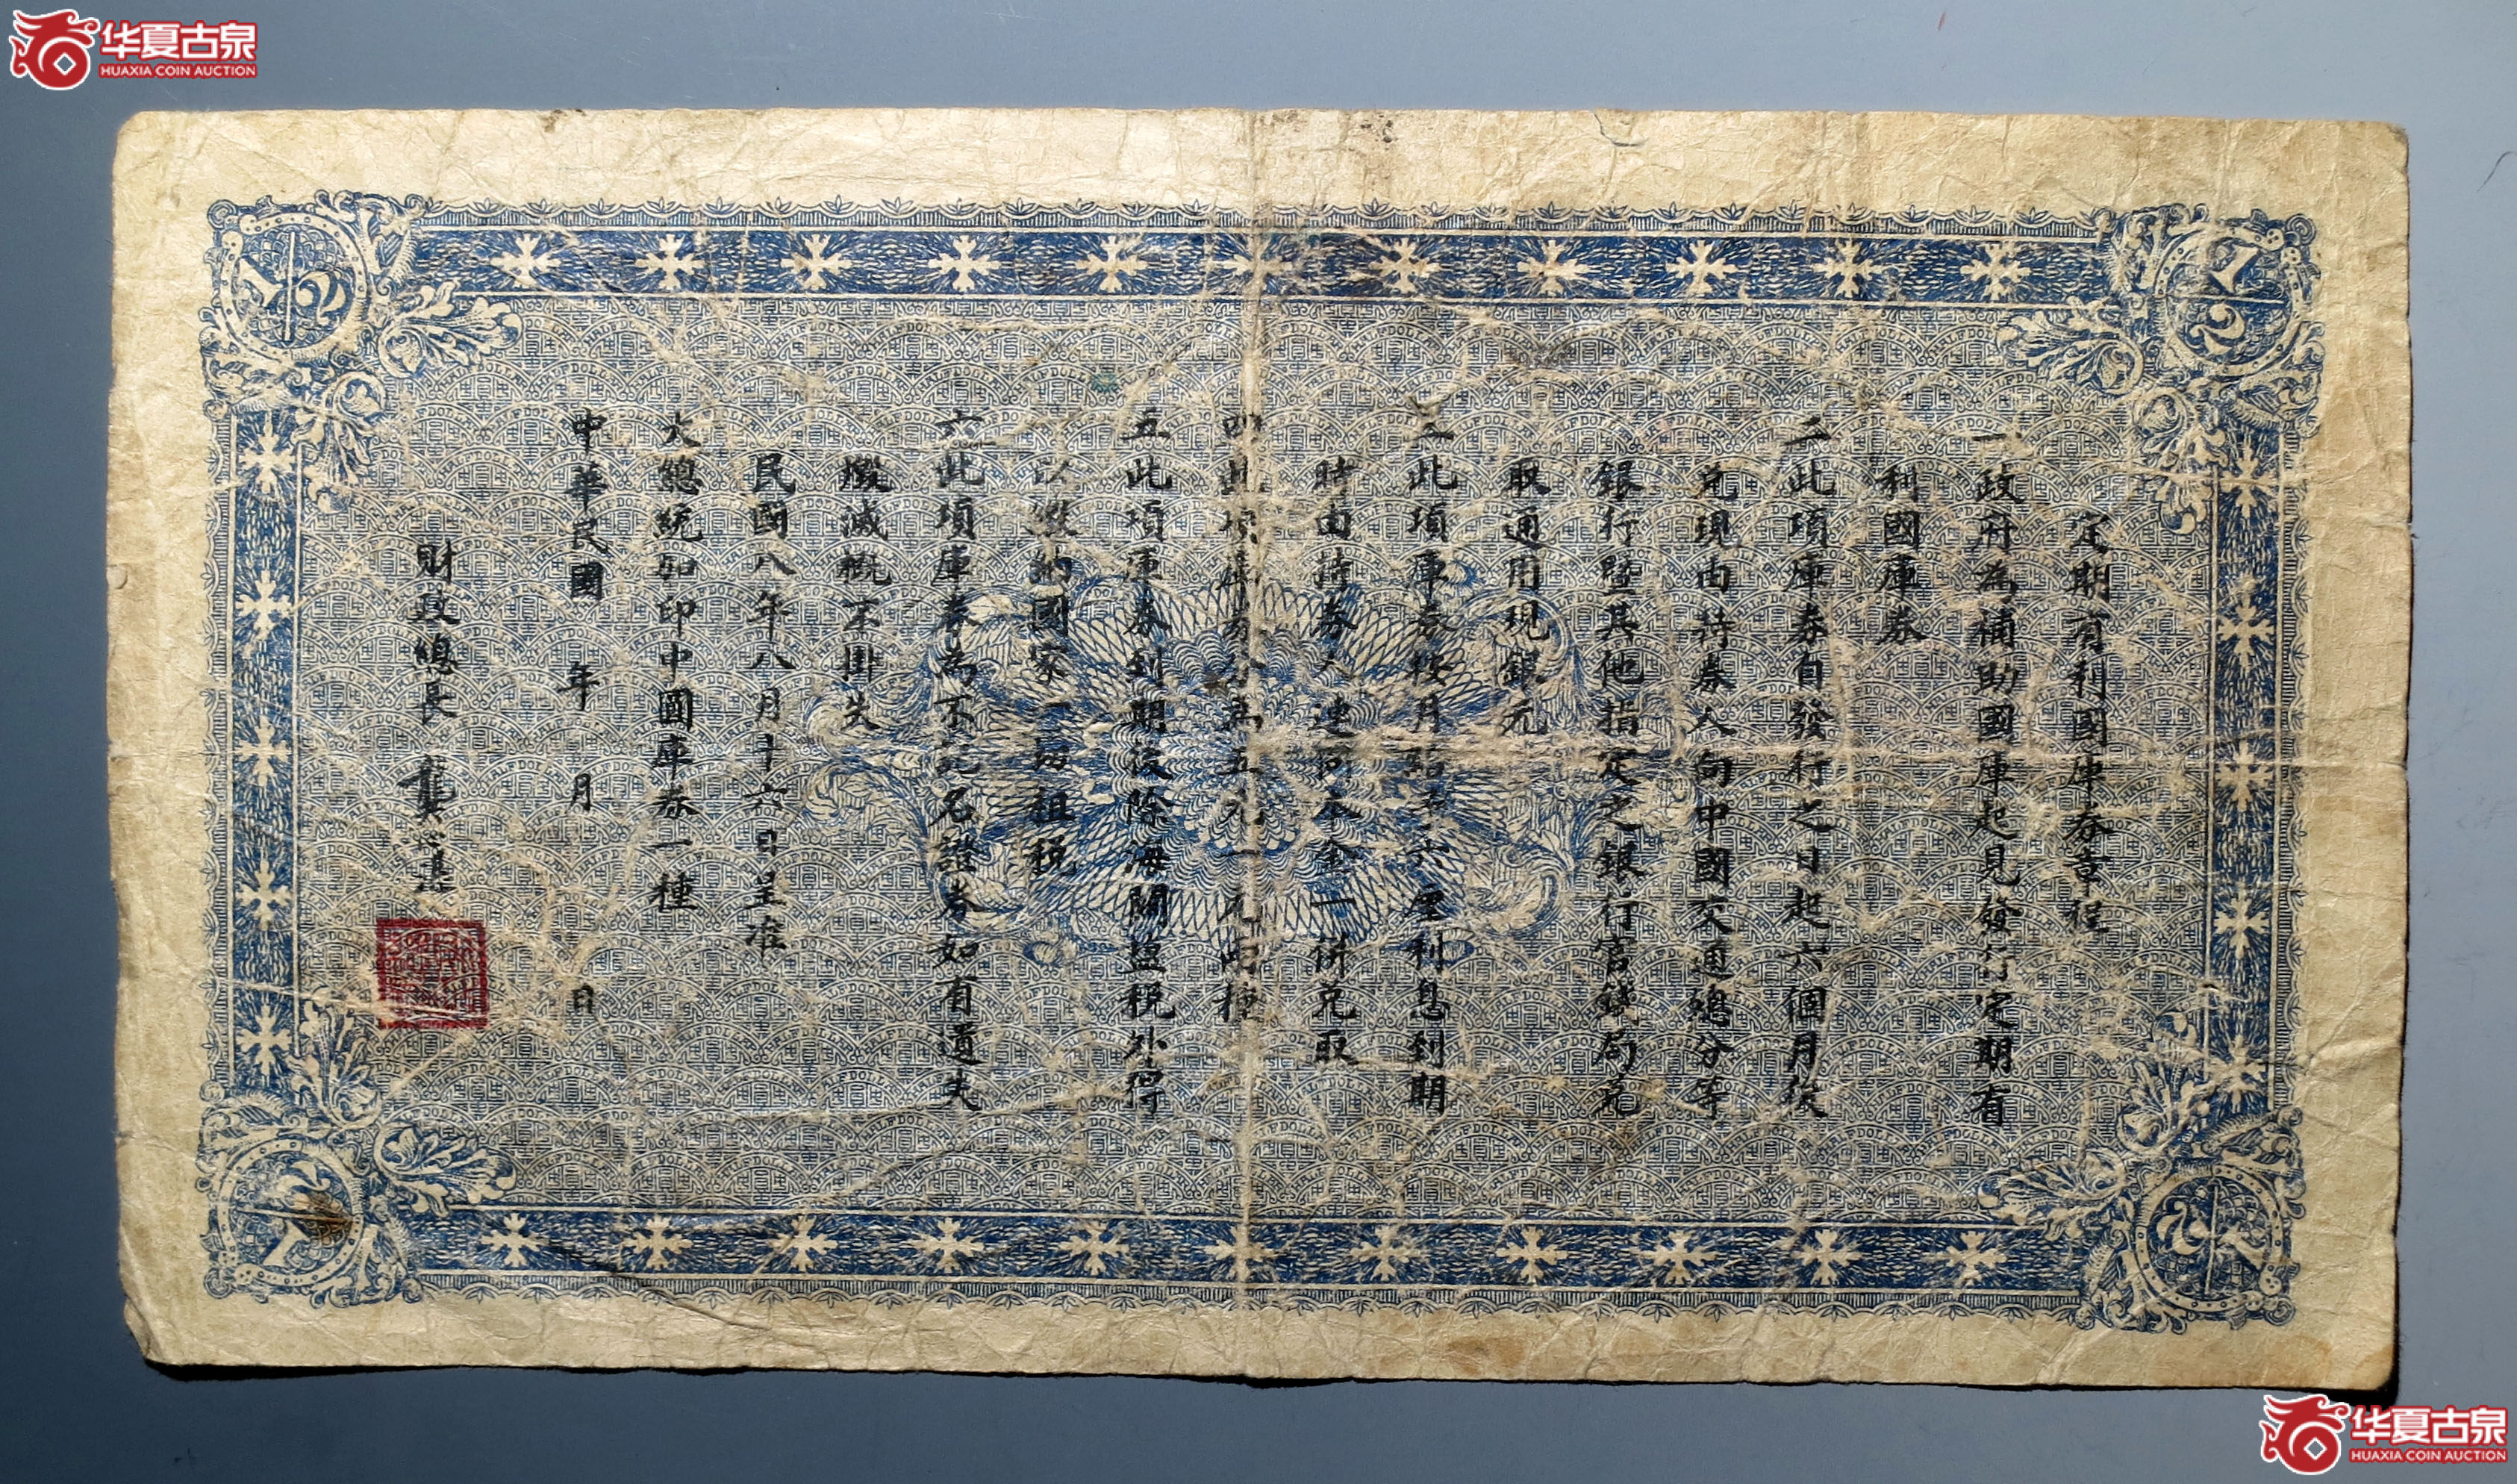 华夏古泉
HUAXIA COIN AUCTION
1/2
1/2
定期有利國庫券章程
一政府為補助國庫起見發行定期有
利國庫券
二此項庫券自發行之日起六個月後
兌現由持券人向中國交通總分等
銀行暨其他指定之銀行官錢局兌
取通用現銀元
三此項庫券按月給六厘利息到期
時由持券人連同本金一併兌取
四此項庫券分為五元一元兩種
五此項庫券到期後除海關鹽稅外得
以繳納國家一切租稅
六此項庫券為不記名證券如有遺失
燬滅概不掛失
民國八年八月十六日呈准
大總統加印中國庫券一種
中華民國 年 月 日
財政總長 龔心湛
1/2
1/2
HALF DOLLAR
华夏古泉
HUAXIA COIN AUCTION